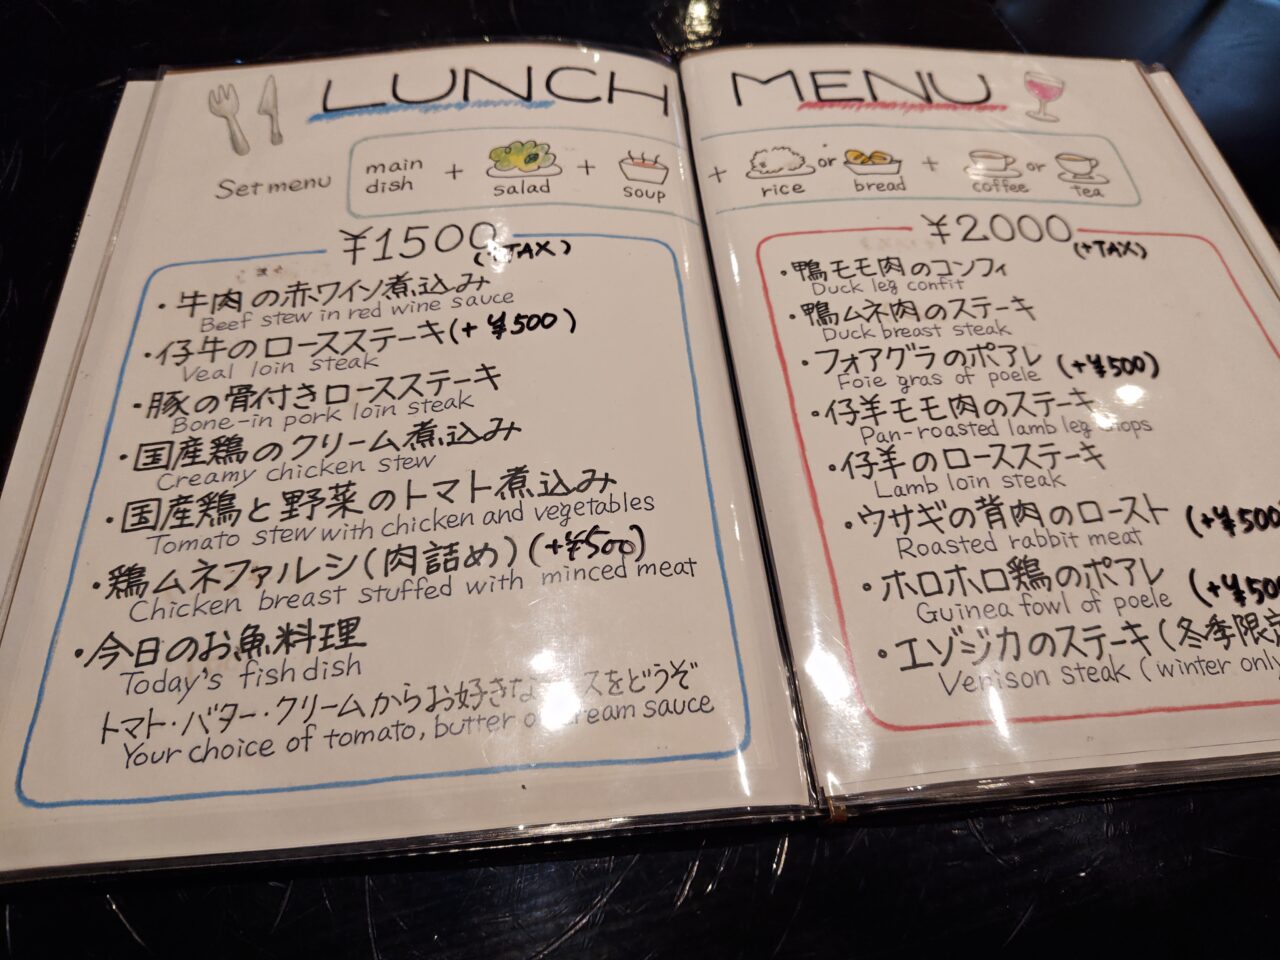 LUNCH MENU
Set menu
main dish + salad + soup + rice or bread + coffee or tea
¥1500 (+TAX)
・牛肉の赤ワイン煮込み
Beef stew in red wine sauce
・仔牛のロースステーキ(+¥500)
Veal loin steak
・豚の骨付きロースステーキ
Bone-in pork loin steak
・国産鶏のクリーム煮込み
Creamy chicken stew
・国産鶏と野菜のトマト煮込み
Tomato stew with chicken and vegetables
・鶏ムネファルシ(肉詰め)(+¥500)
Chicken breast stuffed with minced meat
・今日のお魚料理
Today's fish dish
トマト・バター・クリームからお好きな スをどうぞ
Your choice of tomato, butter or cream sauce
¥2000 (+TAX)
・鴨モモ肉のコンフィ
Duck leg confit
・鴨ムネ肉のステーキ
Duck breast steak
・フォアグラのポアレ (+¥500)
Foie gras of poele
・仔羊モモ肉のステーキ
Pan-roasted lamb leg chops
・仔羊のロースステーキ
Lamb loin steak
・ウサギの背肉のロースト (+¥500
Roasted rabbit meat
・ホロホロ鶏のポアレ (+¥500
Guinea fowl of poele
・エゾジカのステーキ(冬季限定
Venison steak (winter only